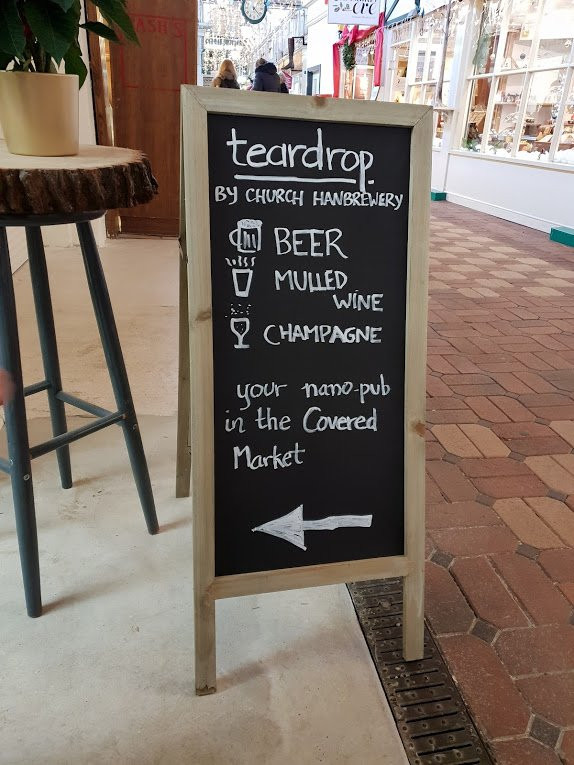 teardrop.
BY CHURCH HANBREWERY
BEER
MULLED
WINE
CHAMPAGNE
your nano-pub
in the Covered
Market